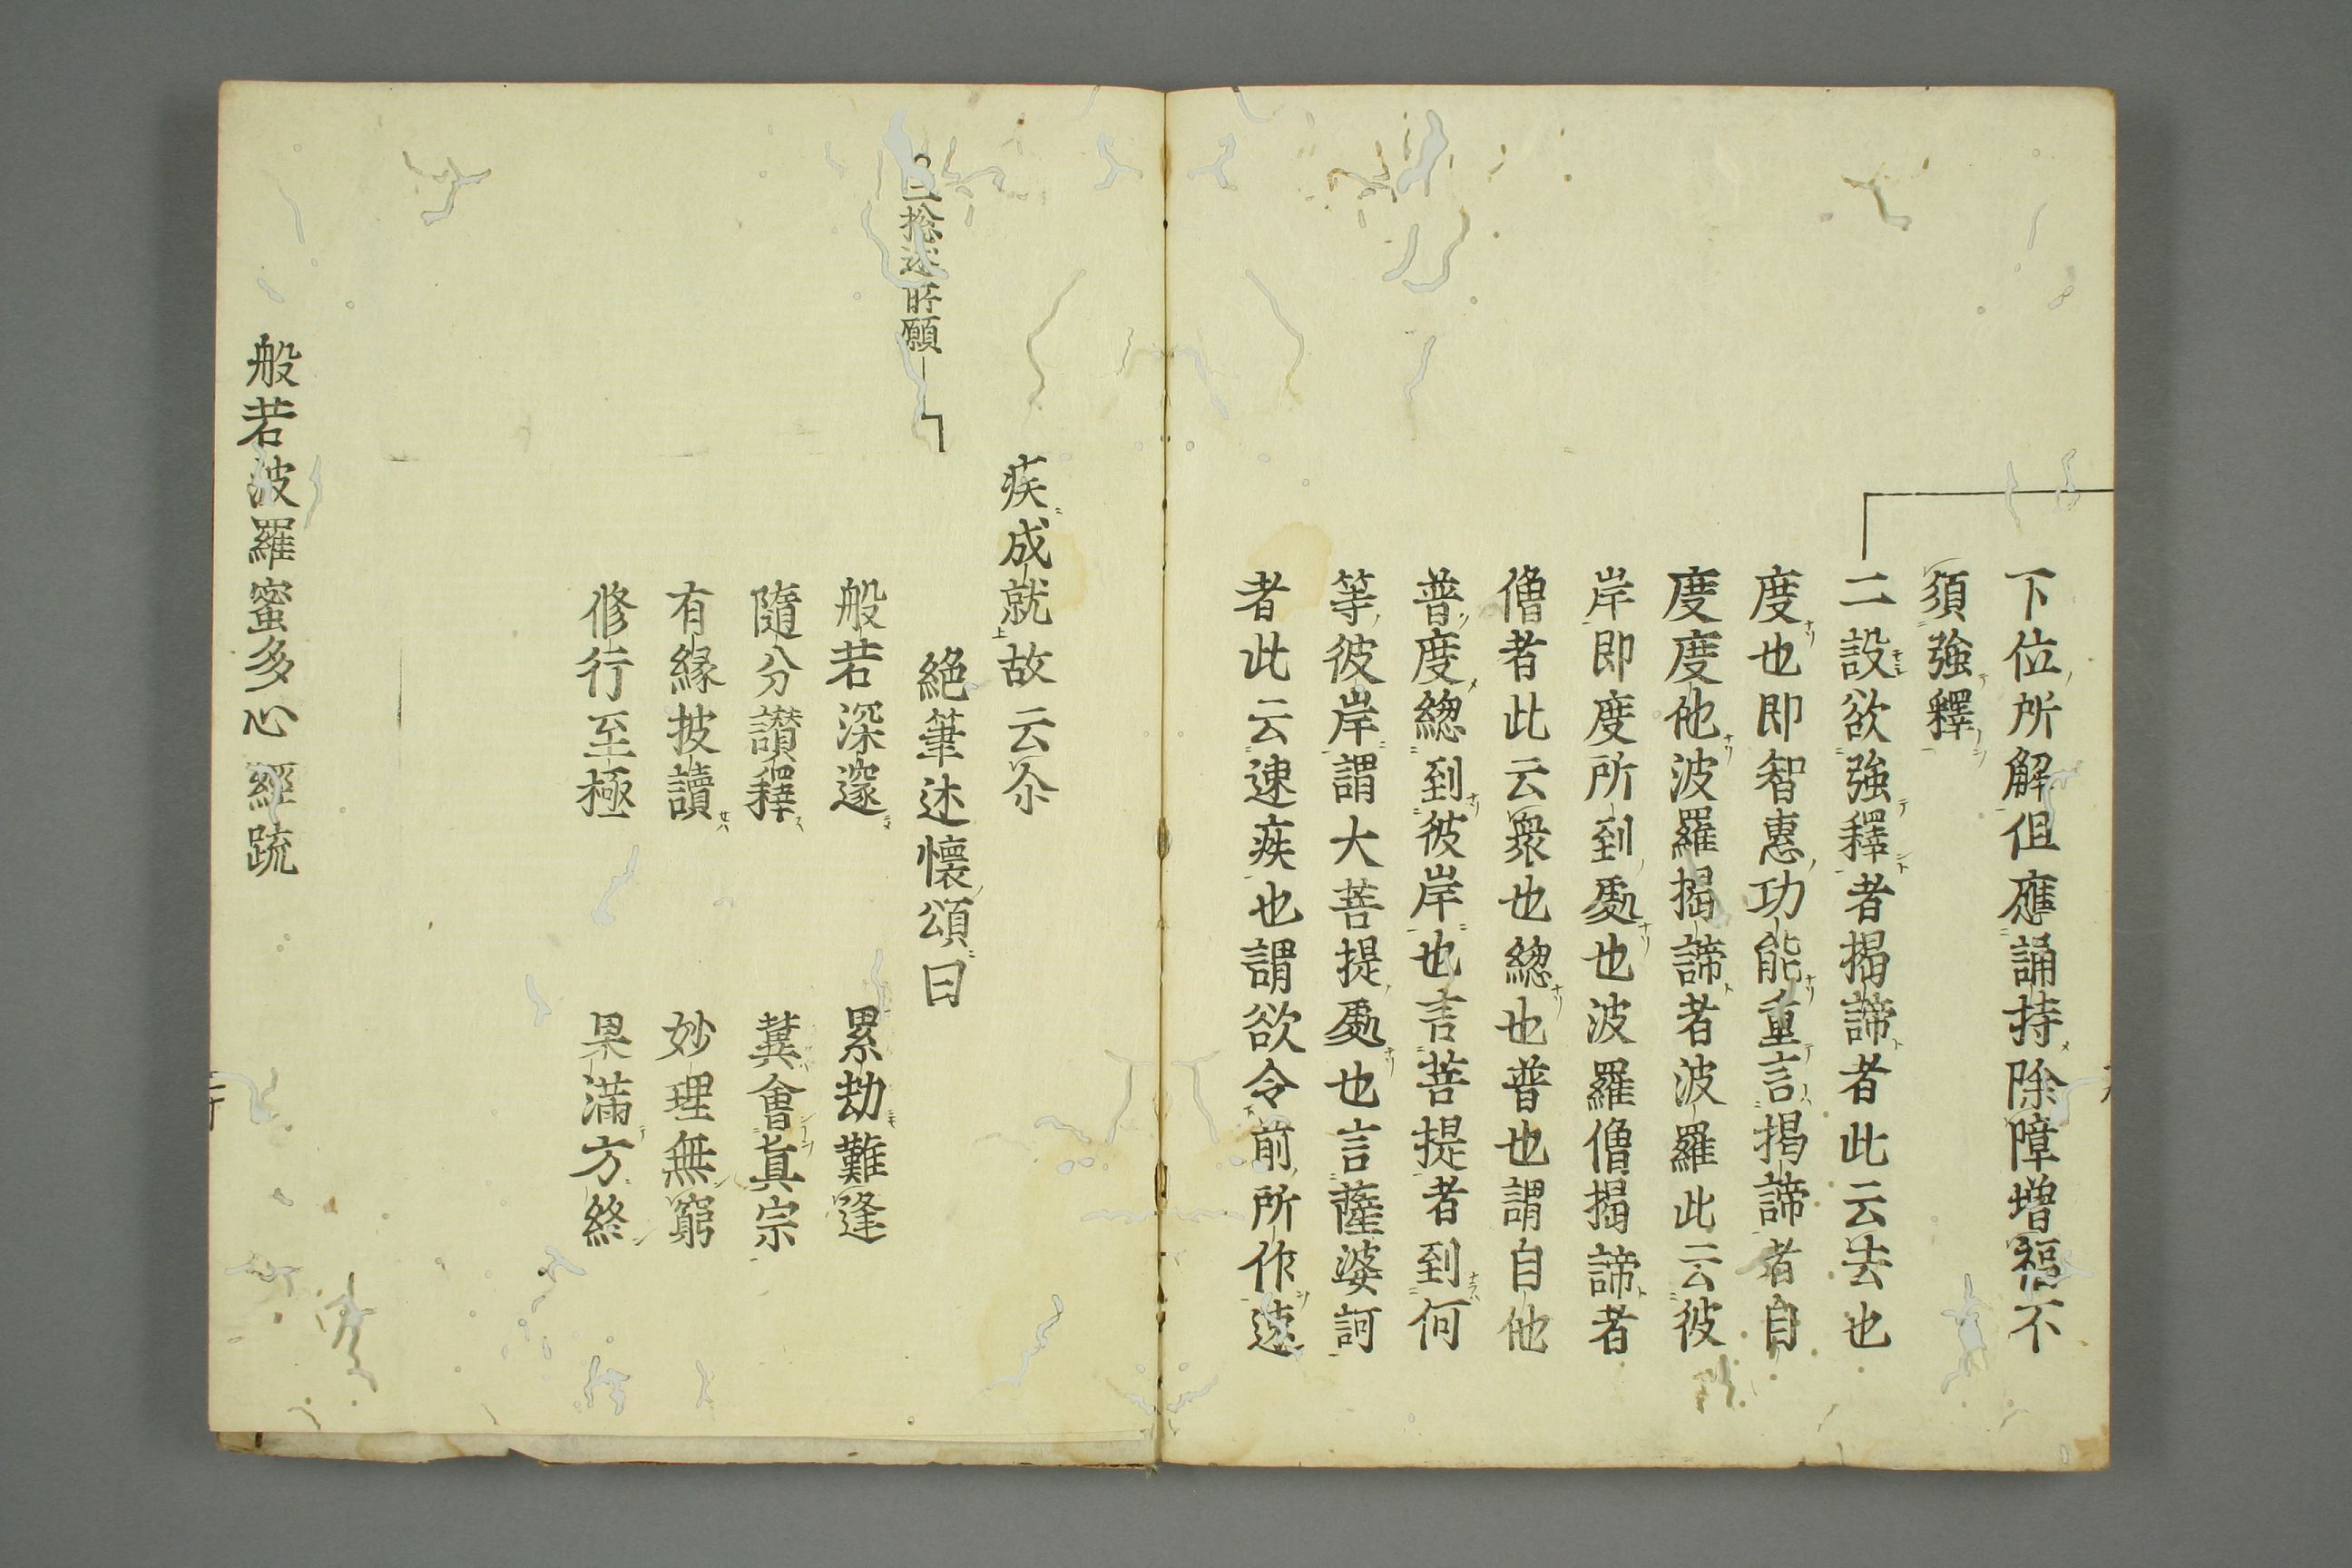 下位所解但應誦持除障增福不
須強釋
二設欲強釋者揭諦者此云去也
度也即智惠功能重言揭諦者自
度度他波羅揭諦者波羅此云彼
岸即度所到處也波羅僧揭諦者
僧者此云衆也緫也普也謂自他
普度緫到彼岸也言菩提者到何
等彼岸謂大菩提處也言薩婆訶
者此云速疾也謂欲令前所作速
疾成就故云尒
捴述所願
絕筆述懷頌曰
般若深邃 累劫難逢
隨分讃釋 冀會真宗
有緣披讀 妙理無窮
修行至極 果滿方終
般若波羅蜜多心經䟽